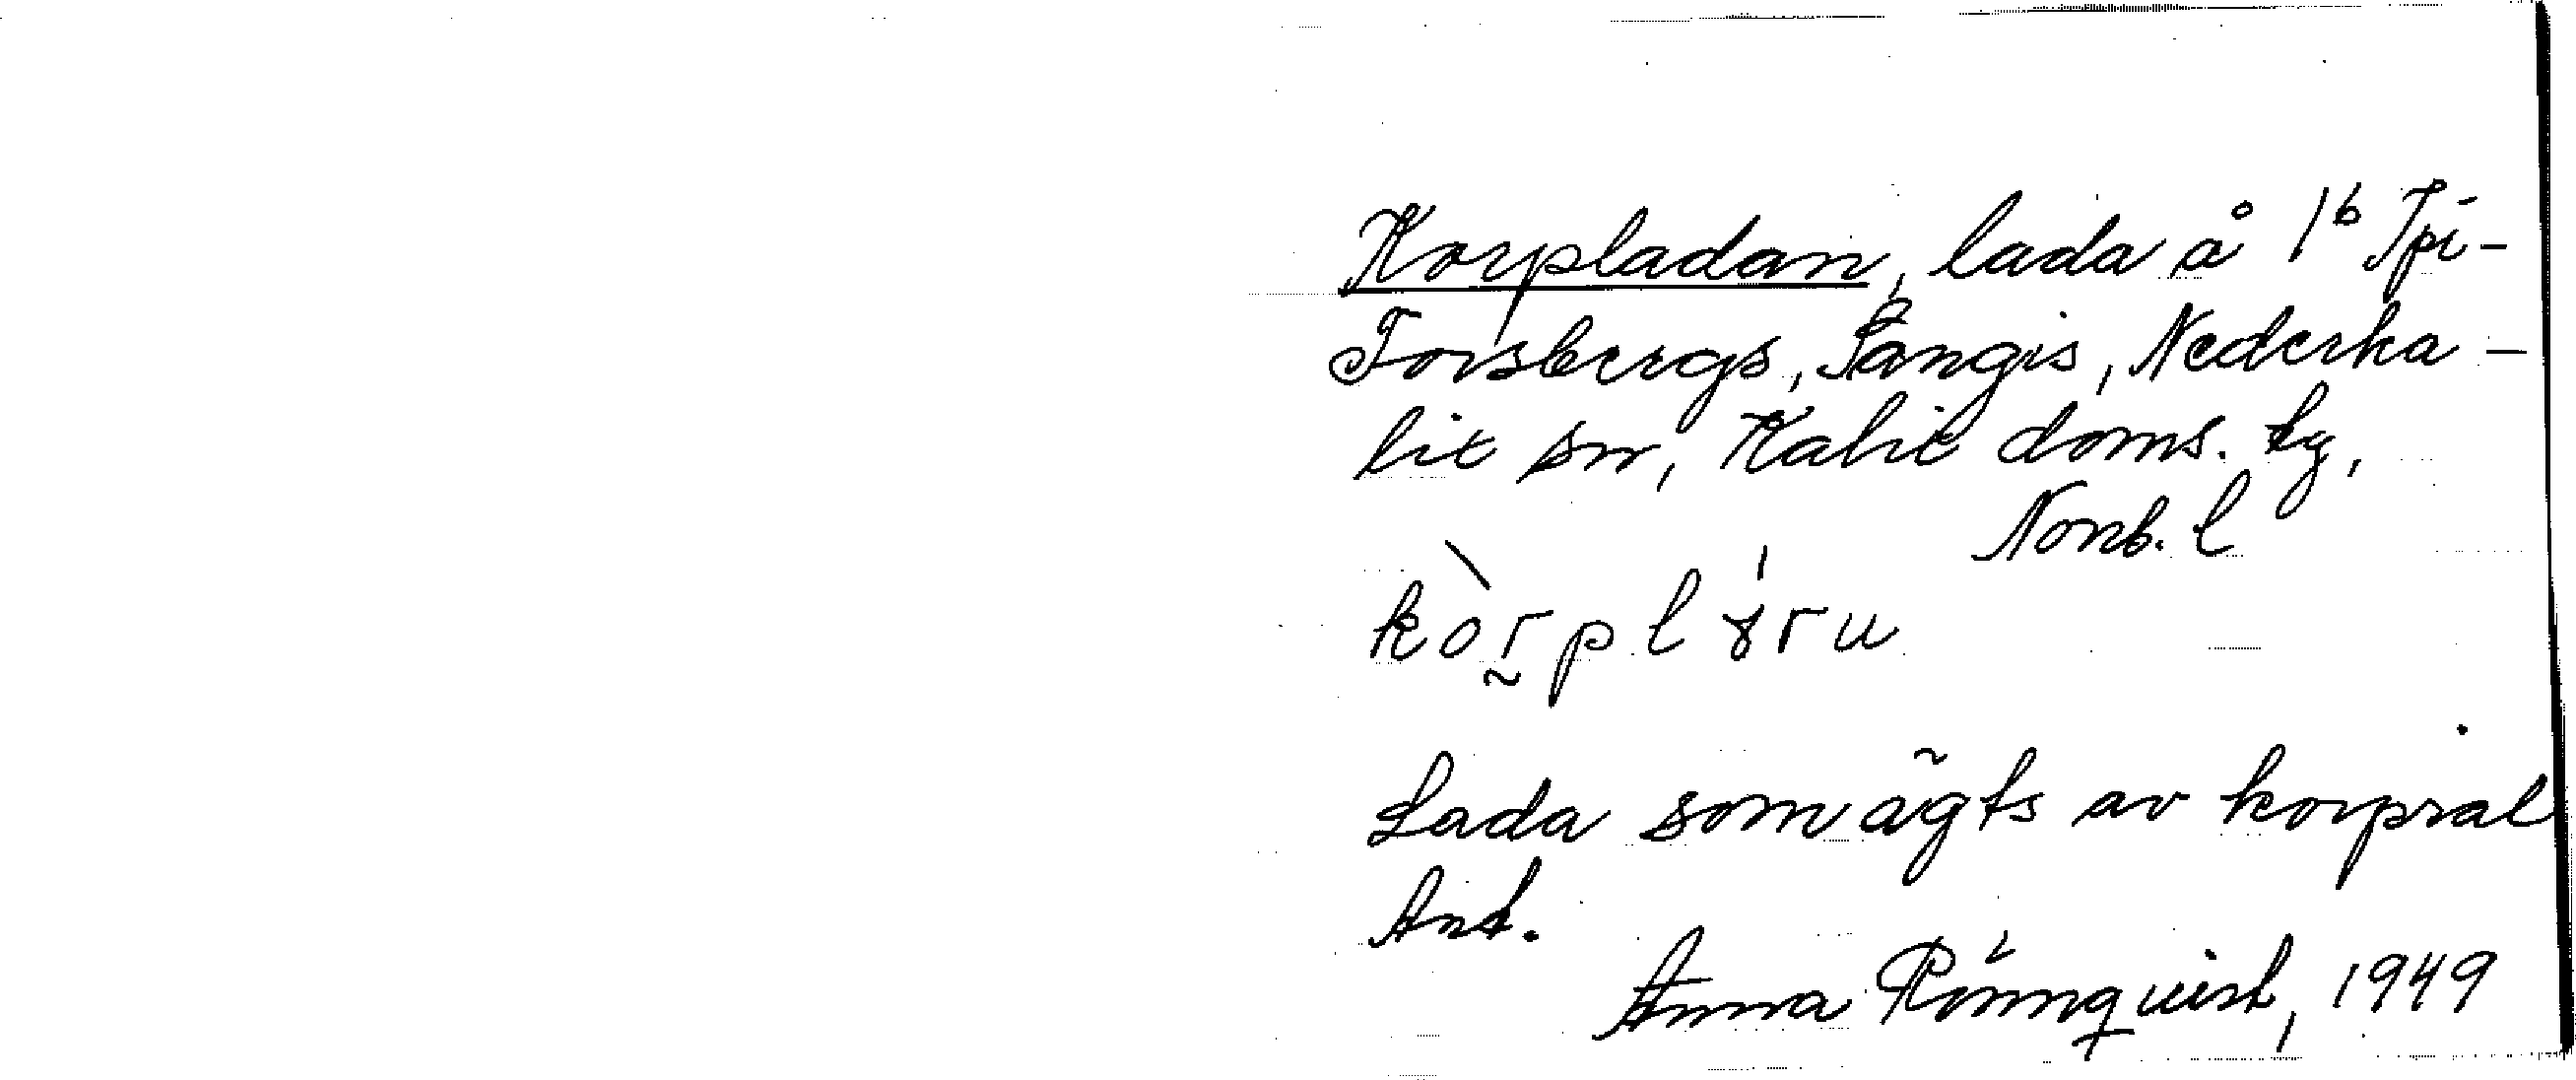 Korpladan, lada å 1b Spi-
Forsbergs, Sangis, Nederka-
lix sn, Kalix doms. tg,
Norrb. l
kòrplaru
Lada som ägts av korpral
Ant.
Anna Rönnqvist, 1949